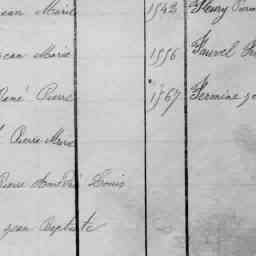 Jean Marie 1543 Henry
Jean Marie 1556 Fauvel
René Pierre 1567 Fermine
Pierre Marie
Pierre Amédée Louis
Jean Baptiste